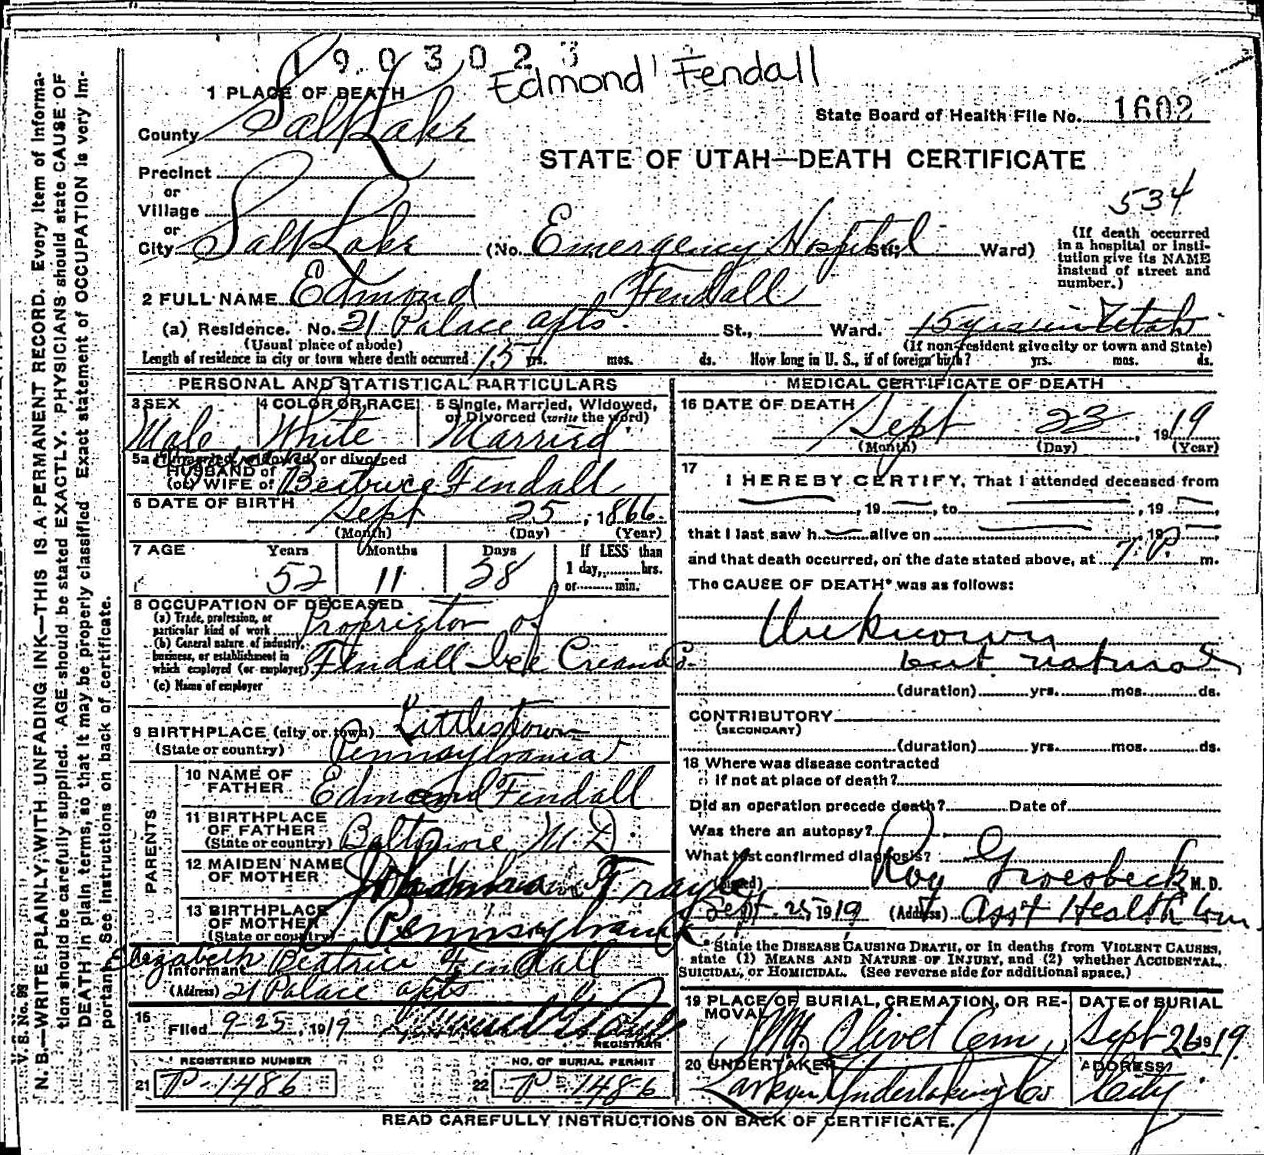 1903023
Edmond Fendall
1 PLACE OF DEATH
State Board of Health File No. 1602
County Salt Lake
STATE OF UTAH—DEATH CERTIFICATE
Precinct
or
Village
534
or
City Salt Lake (No. Emergency Hospital St.; Ward)
(If death occurred in a hospital or institution give its NAME instead of street and number.)
2 FULL NAME Edmond Fendall
(a) Residence. No. 21 Palace apts. St., Ward. 15 yrs in Utah
(Usual place of abode) (If non-resident give city or town and State)
Length of residence in city or town where death occurred 15 yrs. mos. ds. How long in U. S., if of foreign birth? yrs. mos. ds.
PERSONAL AND STATISTICAL PARTICULARS
3 SEX 4 COLOR OR RACE 5 Single, Married, Widowed, or Divorced (write the word)
Male White Married
5a If married, widowed, or divorced
HUSBAND of
(or) WIFE of Beatrice Fendall
6 DATE OF BIRTH Sept 25, 1866
(Month) (Day) (Year)
7 AGE Years Months Days If LESS than
52 11 28 1 day, hrs.
or min.
8 OCCUPATION OF DECEASED
(a) Trade, profession, or
particular kind of work Proprietor of
(b) General nature of industry,
business, or establishment in
which employed (or employer) Fendall Ice Cream Co.
(c) Name of employer
9 BIRTHPLACE (city or town) Littlestown
(State or country) Pennsylvania
10 NAME OF
FATHER Edmond Fendall
11 BIRTHPLACE
OF FATHER
(State or country) Baltimore M D.
12 MAIDEN NAME
OF MOTHER
13 BIRTHPLACE
OF MOTHER
(State or country) Pennsylvania
PARENTS
Informant Elizabeth Beatrice Fendall
(Address) 21 Palace apts
15
Filed 9-25, 1919
REGISTRAR
REGISTERED NUMBER NO. OF BURIAL PERMIT
21 P-1486 22 P-1486
MEDICAL CERTIFICATE OF DEATH
16 DATE OF DEATH
Sept 23, 1919
(Month) (Day) (Year)
17
I HEREBY CERTIFY, That I attended deceased from
, 19 , to , 19
that I last saw h alive on , 19
and that death occurred, on the date stated above, at 7 P. m.
The CAUSE OF DEATH* was as follows:
Unknown
but natural
(duration) yrs. mos. ds.
CONTRIBUTORY
(SECONDARY)
(duration) yrs. mos. ds.
18 Where was disease contracted
if not at place of death?
Did an operation precede death? Date of
Was there an autopsy?
What test confirmed diagnosis?
(Signed) Roy Groesbeck M. D.
Sept. 25, 1919 (Address) Asst Health Com
*State the DISEASE CAUSING DEATH, or in deaths from VIOLENT CAUSES,
state (1) MEANS AND NATURE OF INJURY, and (2) whether ACCIDENTAL,
SUICIDAL, or HOMICIDAL. (See reverse side for additional space.)
19 PLACE OF BURIAL, CREMATION, OR REMOVAL DATE of BURIAL
Mt. Olivet Cem, Sept 26 1919
20 UNDERTAKER ADDRESS
Larkin Undertaking Co City
READ CAREFULLY INSTRUCTIONS ON BACK OF CERTIFICATE.
V. S. No. 99
N. B.—WRITE PLAINLY, WITH UNFADING INK—THIS IS A PERMANENT RECORD. Every item of information should be carefully supplied. AGE should be stated EXACTLY. PHYSICIANS should state CAUSE OF DEATH in plain terms, so that it may be properly classified. Exact statement of OCCUPATION is very important. See instructions on back of certificate.